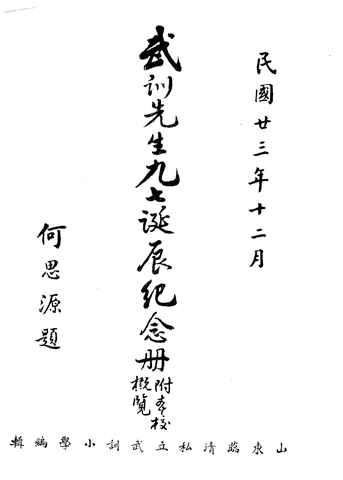 民國廿三年十二月
武訓先生九七誕辰紀念册
附本校
概覽
何思源題
山東臨清私立武訓小學編輯